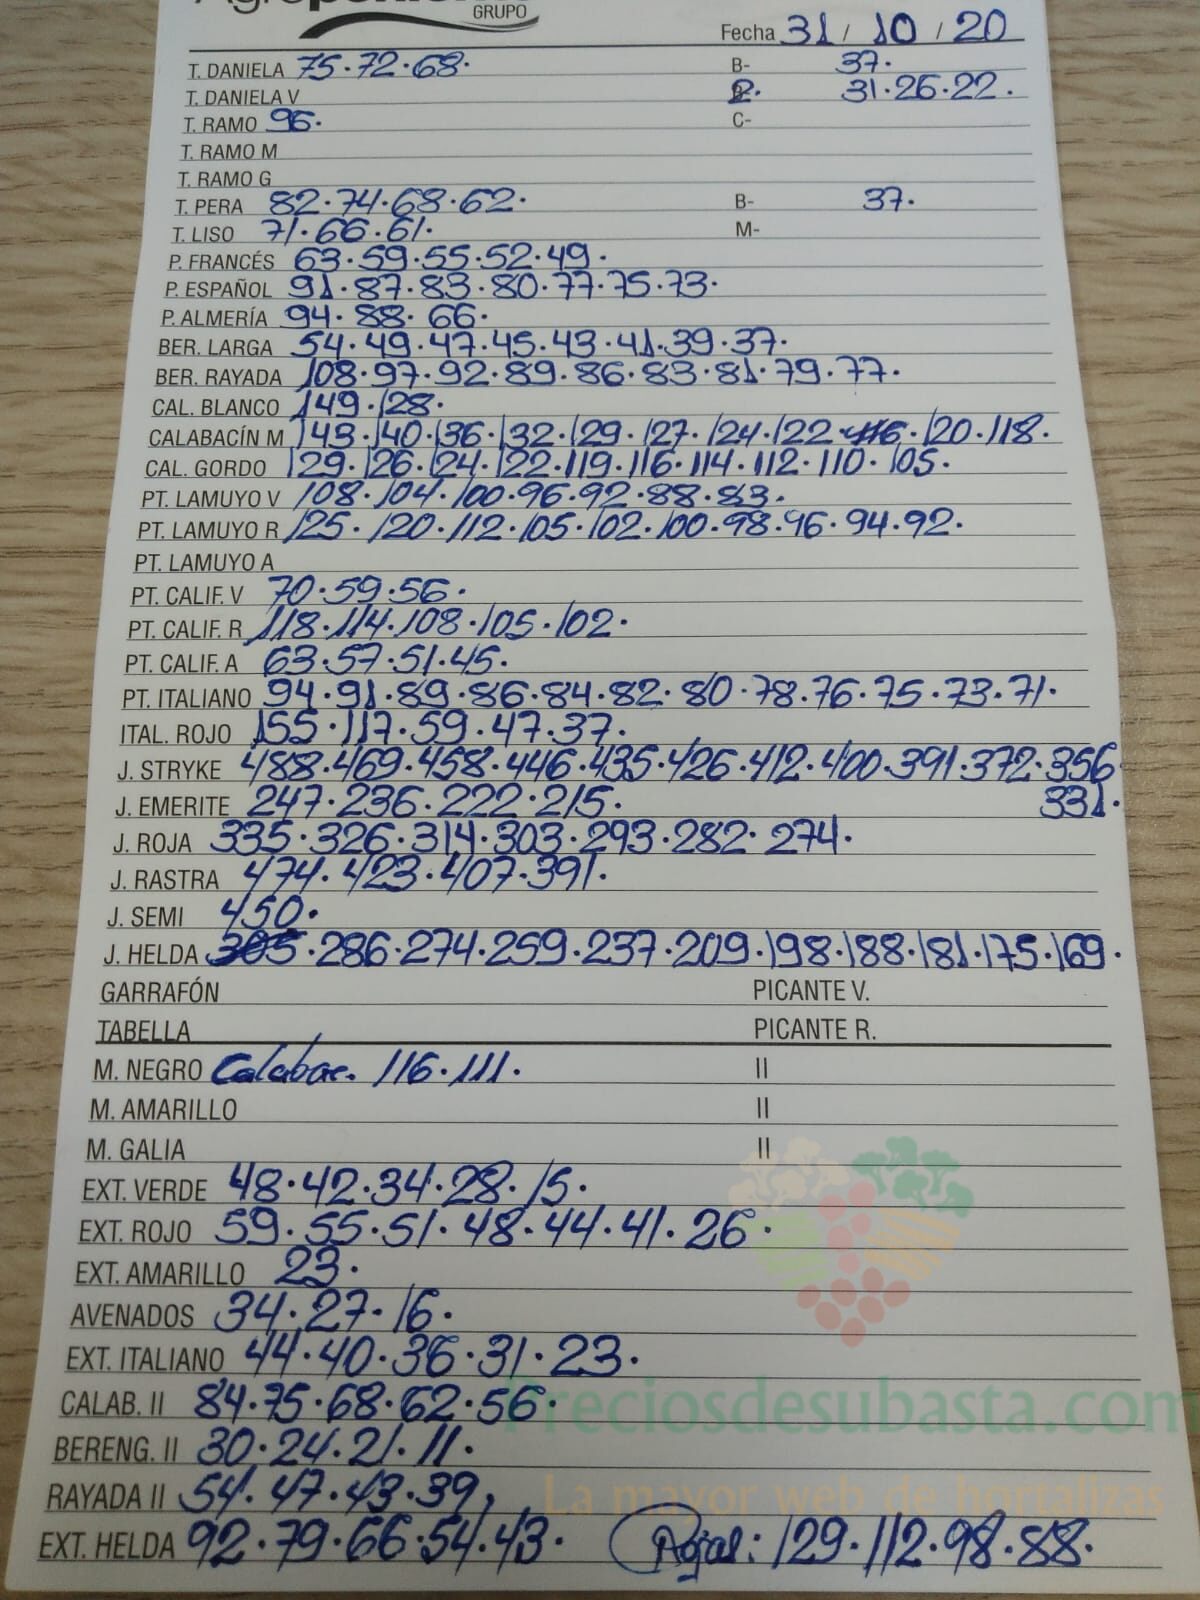 Agroponiente
GRUPO
Fecha 31 / 10 / 20
T. DANIELA 75·72·68· B- 37·
T. DANIELA V 2· 31·26·22·
T. RAMO 96· C-
T. RAMO M
T. RAMO G
T. PERA 82·74·68·62· B- 37·
T. LISO 71·66·61· M-
P. FRANCÉS 63·59·55·52·49·
P. ESPAÑOL 91·87·83·80·77·75·73·
P. ALMERÍA 94·88·66·
BER. LARGA 54·49·47·45·43·41·39·37·
BER. RAYADA 108·97·92·89·86·83·81·79·77·
CAL. BLANCO 149·128·
CALABACÍN M 143·140·136·132·129·127·124·122·116·120·118·
CAL. GORDO 129·126·124·122·119·116·114·112·110·105·
PT. LAMUYO V 108·104·100·96·92·88·83·
PT. LAMUYO R 125·120·112·105·102·100·98·96·94·92·
PT. LAMUYO A
PT. CALIF. V 70·59·56·
PT. CALIF. R 118·114·108·105·102·
PT. CALIF. A 63·57·51·45·
PT. ITALIANO 94·91·89·86·84·82·80·78·76·75·73·71·
ITAL. ROJO 155·117·59·47·37·
J. STRYKE 488·469·458·446·435·426·412·400·391·372·356·
J. EMERITE 247·236·222·215· 331·
J. ROJA 335·326·314·303·293·282·274·
J. RASTRA 474·423·407·391·
J. SEMI 450·
J. HELDA 305·286·274·259·237·209·198·188·181·175·169·
GARRAFÓN PICANTE V.
TABELLA PICANTE R.
M. NEGRO Calabac. 116·111· II
M. AMARILLO II
M. GALIA II
EXT. VERDE 48·42·34·28·15·
EXT. ROJO 59·55·51·48·44·41·26·
EXT. AMARILLO 23·
AVENADOS 34·27·16·
EXT. ITALIANO 44·40·36·31·23·
CALAB. II 84·75·68·62·56·
Preciosdesubasta.com
BERENG. II 30·24·21·11·
RAYADA II 54·47·43·39,
La mayor web de hortalizas
EXT. HELDA 92·79·66·54·43· Rojas: 129·112·98·88·